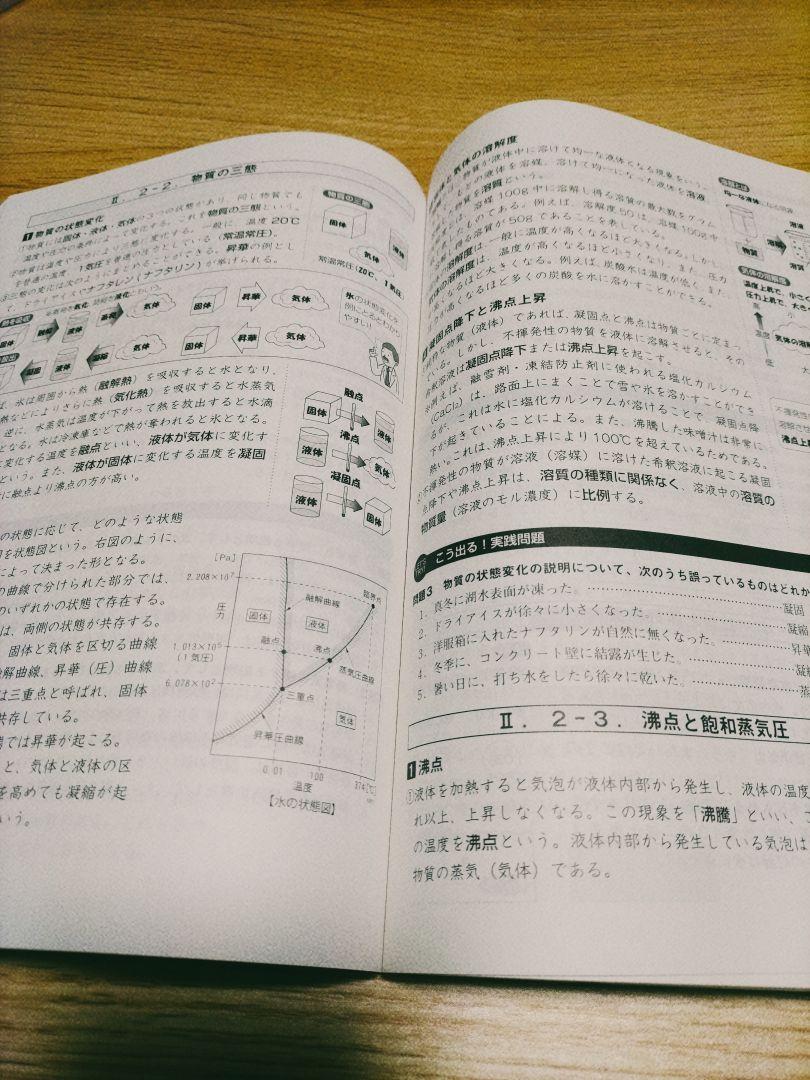 Ⅱ. 2-2. 物質の三態
1 物質の状態変化
物質には固体・液体・気体の3つの状態があり、同じ物質でも
温度や圧力の条件によって変化する。これを物質の三態という。
物質は温度や圧力により三態に変化する。一般に、温度20℃
を普通の温度、1気圧を普通の圧力としている(常温常圧)。
三態の変化は次のようにまとめることができる。昇華の例とし
て、ドライアイスやナフタレン(ナフタリン)が挙げられる。
物質の三態
固体
液体
気体
常温常圧(20℃、1気圧)
液体
蒸発
気体
固体
昇華
気体
凝固
液体
凝縮
気体
固体
昇華
気体
氷の状態変化を
例にとるとわかり
やすい!
ば、水は周囲から熱(融解熱)を吸収すると水となり、
熱などによりさらに熱(気化熱)を吸収すると水蒸気
逆に、水蒸気は温度が下がって熱を放出すると水滴
となる。水は冷凍庫などで熱が奪われると氷となる。
に変化する温度を融点といい、液体が気体に変化す
という。また、液体が固体に変化する温度を凝固
に融点より沸点の方が高い。
融点
固体
液体
沸点
液体
気体
凝固点
液体
固体
の状態に応じて、どのような状態
を状態図という。右図のように、
によって決まった形となる。
の曲線で分けられた部分では、
のいずれかの状態で存在する。
は、両側の状態が共存する。
固体と気体を区切る曲線
融解曲線、昇華(圧)曲線
は三重点と呼ばれ、固体
共存している。
では昇華が起こる。
と、気体と液体の区
を高めても凝縮が起
いう。
[Pa]
2.208×10⁷
圧力
1.013×10⁵
(1気圧)
6.078×10²
融解曲線
臨界点
固体
液体
融点
沸点
蒸気圧曲線
三重点
気体
昇華圧曲線
0.01
100
374[℃]
温度
【水の状態図】
気体の溶解度
物質が液体中に溶けて均一な液体になる現象をいう。
もとの液体を溶媒、溶けて均一になった液体を溶液
物質を溶質という。
は、溶媒100g中に溶解し得る溶質の最大数をグラム
したものである。例えば、溶解度50は、溶媒100g中
し得る溶質が50gであることを表している。
の溶解度は、一般に温度が高くなるほど大きくなる。しかし、
気体の溶解度は、温度が高くなるほど小さくなり、また、圧力
くなるほど大きくなる。例えば、炭酸水は温度が低く、また
が高くなるほど多くの炭酸を水に溶かすことができる。
溶解とは
均一な液体になる現象
溶液
物質
溶解
溶質
気体の溶解度
温度上昇で、小さく
圧力上昇で、大き
高
温度
低
気体の溶
凝固点降下と沸点上昇
純粋な物質(液体)であれば、凝固点と沸点は物質ごとに定まっ
ている。しかし、不揮発性の物質を液体に溶解させると、その
希釈溶液は凝固点降下または沸点上昇を起こす。
例えば、融雪剤・凍結防止剤に使われる塩化カルシウム
(CaCl₂)は、路面上にまくことで雪や氷を溶かすことができ
るが、これは水に塩化カルシウムが溶けることで、凝固点降
下が起きていることによる。また、沸騰した味噌汁は非常に
熱い。これは、沸点上昇により100℃を超えているためである。
不揮発性の物質が溶液(溶媒)に溶けた希釈溶液に起こる凝固
点降下や沸点上昇は、溶質の種類に関係なく、溶液中の溶質の
物質量(溶液のモル濃度)に比例する。
不揮発性
溶解させ
沸点上
こう出る!実践問題
問題3 物質の状態変化の説明について、次のうち誤っているものはどれか
1. 真冬に湖水表面が凍った。……凝固
2. ドライアイスが徐々に小さくなった。……凝縮
3. 洋服箱に入れたナフタリンが自然に無くなった。……昇華
4. 冬季に、コンクリート壁に結露が生じた。……凝縮
5. 暑い日に、打ち水をしたら徐々に乾いた。……蒸
Ⅱ. 2-3. 沸点と飽和蒸気圧
1 沸点
①液体を加熱すると気泡が液体内部から発生し、液体の温度
れ以上、上昇しなくなる。この現象を「沸騰」といい、こ
の温度を沸点という。液体内部から発生している気泡は
物質の蒸気(気体)である。